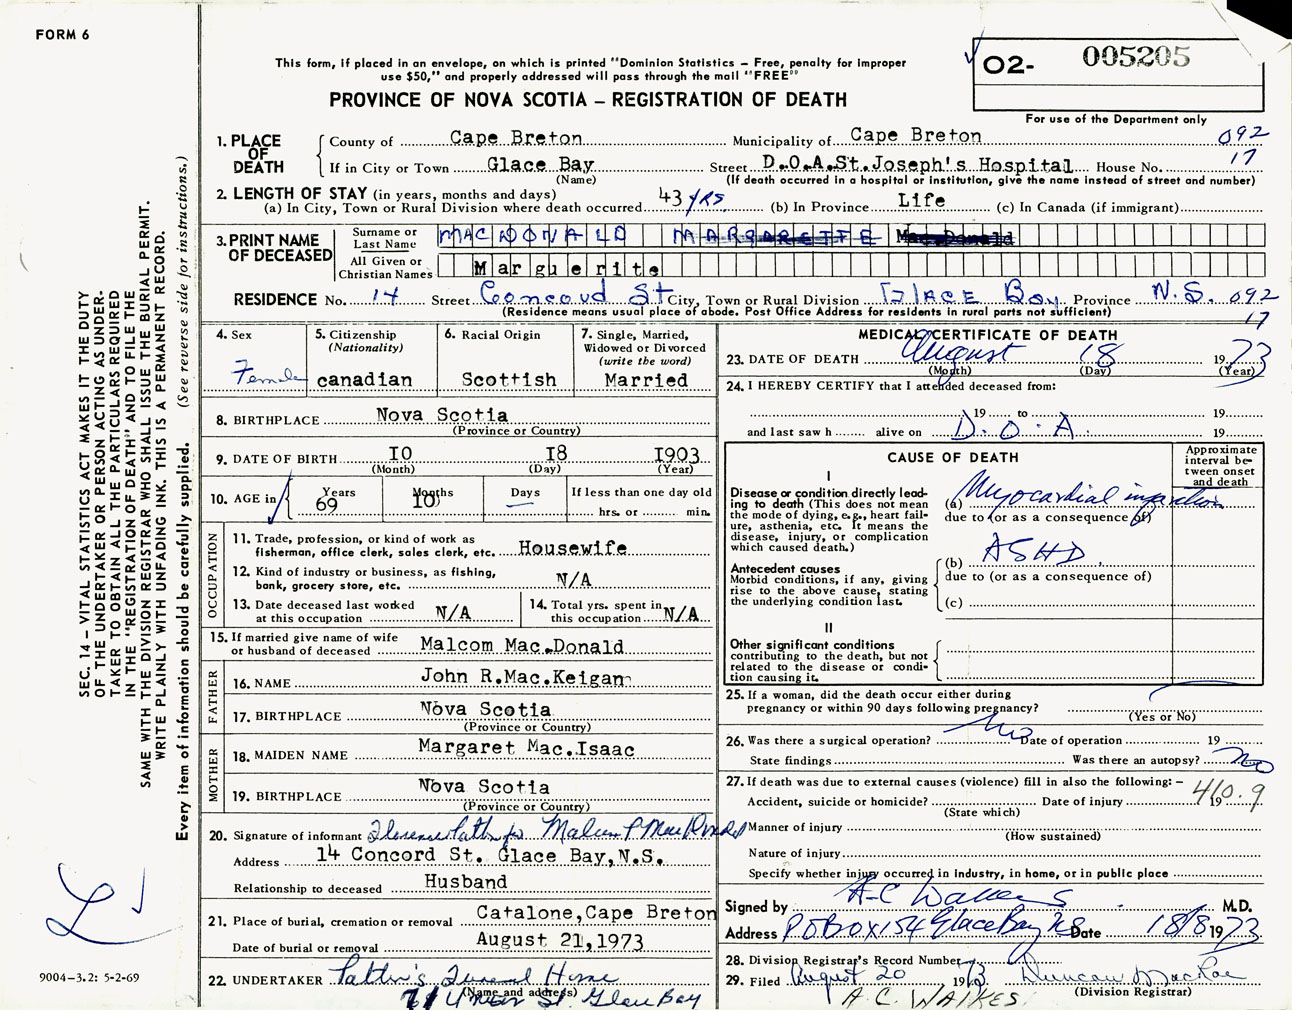 FORM 6
This form, if placed in an envelope, on which is printed "Dominion Statistics – Free, penalty for improper
use $50," and properly addressed will pass through the mail "FREE"
PROVINCE OF NOVA SCOTIA – REGISTRATION OF DEATH
O2- 005205
For use of the Department only
SEC. 14 – VITAL STATISTICS ACT MAKES IT THE DUTY
OF THE UNDERTAKER OR PERSON ACTING AS UNDER-
TAKER TO OBTAIN ALL THE PARTICULARS REQUIRED
IN THE "REGISTRATION OF DEATH" AND TO FILE THE
SAME WITH THE DIVISION REGISTRAR WHO SHALL ISSUE THE BURIAL PERMIT.
WRITE PLAINLY WITH UNFADING INK. THIS IS A PERMANENT RECORD.
Every item of information should be carefully supplied. (See reverse side for instructions.)
1. PLACE OF DEATH
County of Cape Breton Municipality of Cape Breton 092
If in City or Town Glace Bay Street D.O.A. St. Joseph's Hospital House No. 17
(Name) (If death occurred in a hospital or institution, give the name instead of street and number)
2. LENGTH OF STAY (in years, months and days)
(a) In City, Town or Rural Division where death occurred 43 yrs. (b) In Province Life (c) In Canada (if immigrant)
3. PRINT NAME OF DECEASED
Surname or Last Name MACDONALD MARGARETTE Mac.Donald
All Given or Christian Names Marguerite
RESIDENCE No. 14 Street Concord St City, Town or Rural Division GLACE Bay Province N.S. 092
(Residence means usual place of abode. Post Office Address for residents in rural parts not sufficient) 17
4. Sex Female
5. Citizenship (Nationality) canadian
6. Racial Origin Scottish
7. Single, Married, Widowed or Divorced (write the word) Married
8. BIRTHPLACE Nova Scotia
(Province or Country)
9. DATE OF BIRTH 10 18 1903
(Month) (Day) (Year)
10. AGE in Years 69 Months 10 Days — If less than one day old
hrs. or min.
OCCUPATION
11. Trade, profession, or kind of work as
fisherman, office clerk, sales clerk, etc. Housewife
12. Kind of industry or business, as fishing,
bank, grocery store, etc. N/A
13. Date deceased last worked at this occupation N/A
14. Total yrs. spent in this occupation N/A
15. If married give name of wife
or husband of deceased Malcom Mac.Donald
FATHER
16. NAME John R.Mac.Keigan
17. BIRTHPLACE Nova Scotia
(Province or Country)
MOTHER
18. MAIDEN NAME Margaret Mac.Isaac
19. BIRTHPLACE Nova Scotia
(Province or Country)
20. Signature of informant
Address 14 Concord St. Glace Bay, N.S.
Relationship to deceased Husband
21. Place of burial, cremation or removal Catalone, Cape Breton
Date of burial or removal August 21, 1973
22. UNDERTAKER Patten's Funeral Home
(Name and address)
71 Union St. Glace Bay
9004-3.2: 5-2-69
MEDICAL CERTIFICATE OF DEATH
23. DATE OF DEATH August 18 1973
(Month) (Day) (Year)
24. I HEREBY CERTIFY that I attended deceased from:
19 to 19
and last saw h alive on D.O.A. 19
CAUSE OF DEATH
Approximate interval between onset and death
I
Disease or condition directly lead-
ing to death (This does not mean
the mode of dying, e.g., heart fail-
ure, asthenia, etc. It means the
disease, injury, or complication
which caused death.)
(a) Myocardial infarction
due to (or as a consequence of)
(b) ASHD.
due to (or as a consequence of)
(c)
Antecedent causes
Morbid conditions, if any, giving
rise to the above cause, stating
the underlying condition last.
II
Other significant conditions
contributing to the death, but not
related to the disease or condi-
tion causing it.
25. If a woman, did the death occur either during
pregnancy or within 90 days following pregnancy?
(Yes or No)
26. Was there a surgical operation? No Date of operation 19
State findings Was there an autopsy? No
27. If death was due to external causes (violence) fill in also the following: –
Accident, suicide or homicide? Date of injury 19 410.9
(State which)
Manner of injury
(How sustained)
Nature of injury
Specify whether injury occurred in industry, in home, or in public place
Signed by A-C Walkes M.D.
Address P O BOX 154 Glace Bay NS Date 18/8 1973
28. Division Registrar's Record Number
29. Filed August 20 1973 Duncan MacRae
(Division Registrar)
A.C. WALKES